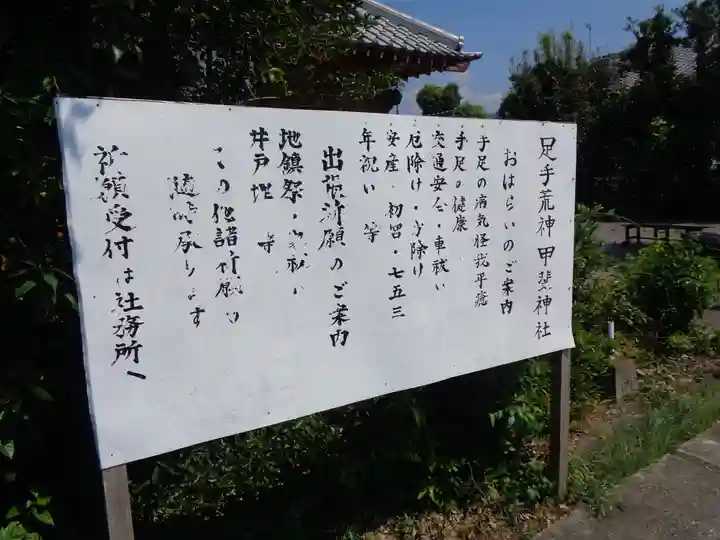 足手荒神甲斐神社
おはらいのご案内
手足の病気怪我平癒
手足の健康
交通安全・車祓い
厄除け・方除け
安産・初宮・七五三
年祝い 等
出張祈願のご案内
地鎮祭・家祓い
井戸埋 等
その他諸祈願の
随時承ります
祈願受付は社務所へ